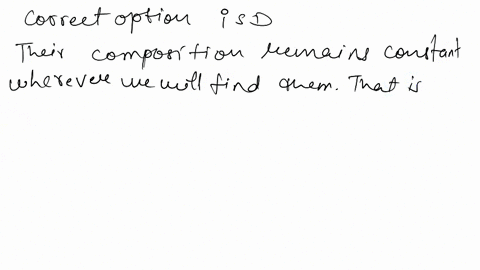 correct option is D
Their composition remains constant
wherever we will find them. That is